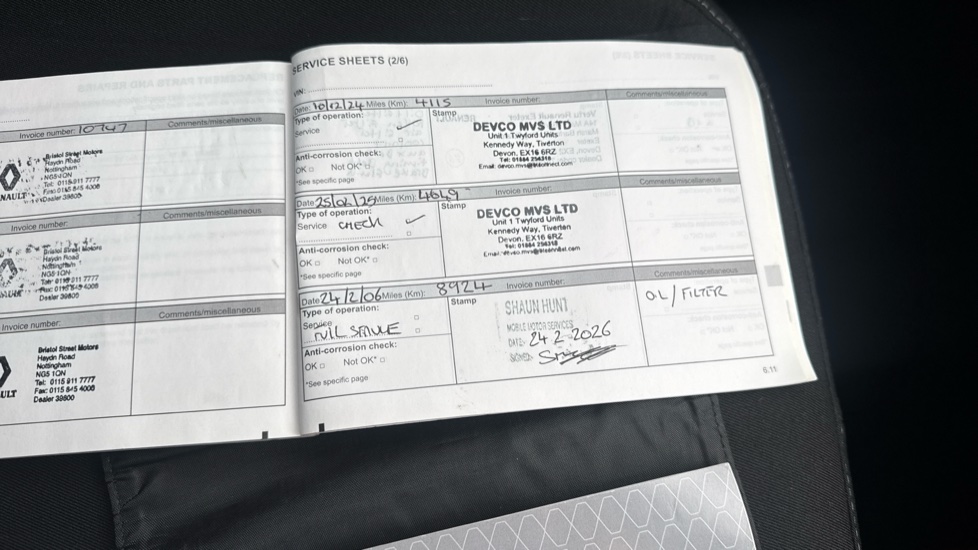 Invoice number: 10747
Comments/miscellaneous
Bristol Street Motors
Haydn Road
Nottingham
NG5 1QN
Tel: 0115 911 7777
Fax: 0115 845 4008
Dealer 39805
Invoice number:
Comments/miscellaneous
Bristol Street Motors
Haydn Road
Nottingham
NG5 1QN
Dealer
Invoice number:
Comments/miscellaneous
Bristol Street Motors
Haydn Road
Nottingham
NG5 1QN
Tel: 0115 911 7777
Fax: 0115 845 4008
Dealer 39800
SERVICE SHEETS (2/6)
VIN:
Date: 10/12/24 Miles (Km): 4115
Invoice number:
Comments/miscellaneous
Type of operation:
Service ✓
Anti-corrosion check:
OK □ Not OK* □
*See specific page
Stamp
DEVCO MVS LTD
Unit 1 Twyford Units
Kennedy Way, Tiverton
Devon, EX16 6RZ
Tel: 01884 256318
Date 25/02/25 Miles (Km): 4649
Invoice number:
Comments/miscellaneous
Type of operation:
Service CHECK ✓
Anti-corrosion check:
OK □ Not OK* □
*See specific page
Stamp
DEVCO MVS LTD
Unit 1 Twyford Units
Kennedy Way, Tiverton
Devon, EX16 6RZ
Date 24/2/06 Miles (Km): 8924
Invoice number:
Comments/miscellaneous
Type of operation:
Service □
□
Anti-corrosion check:
OK □ Not OK* □
*See specific page
Stamp
SHAUN HUNT
MOBILE MOTOR SERVICES
DATE: 24 2 2026
SIGNED:
OIL/FILTER
6.11